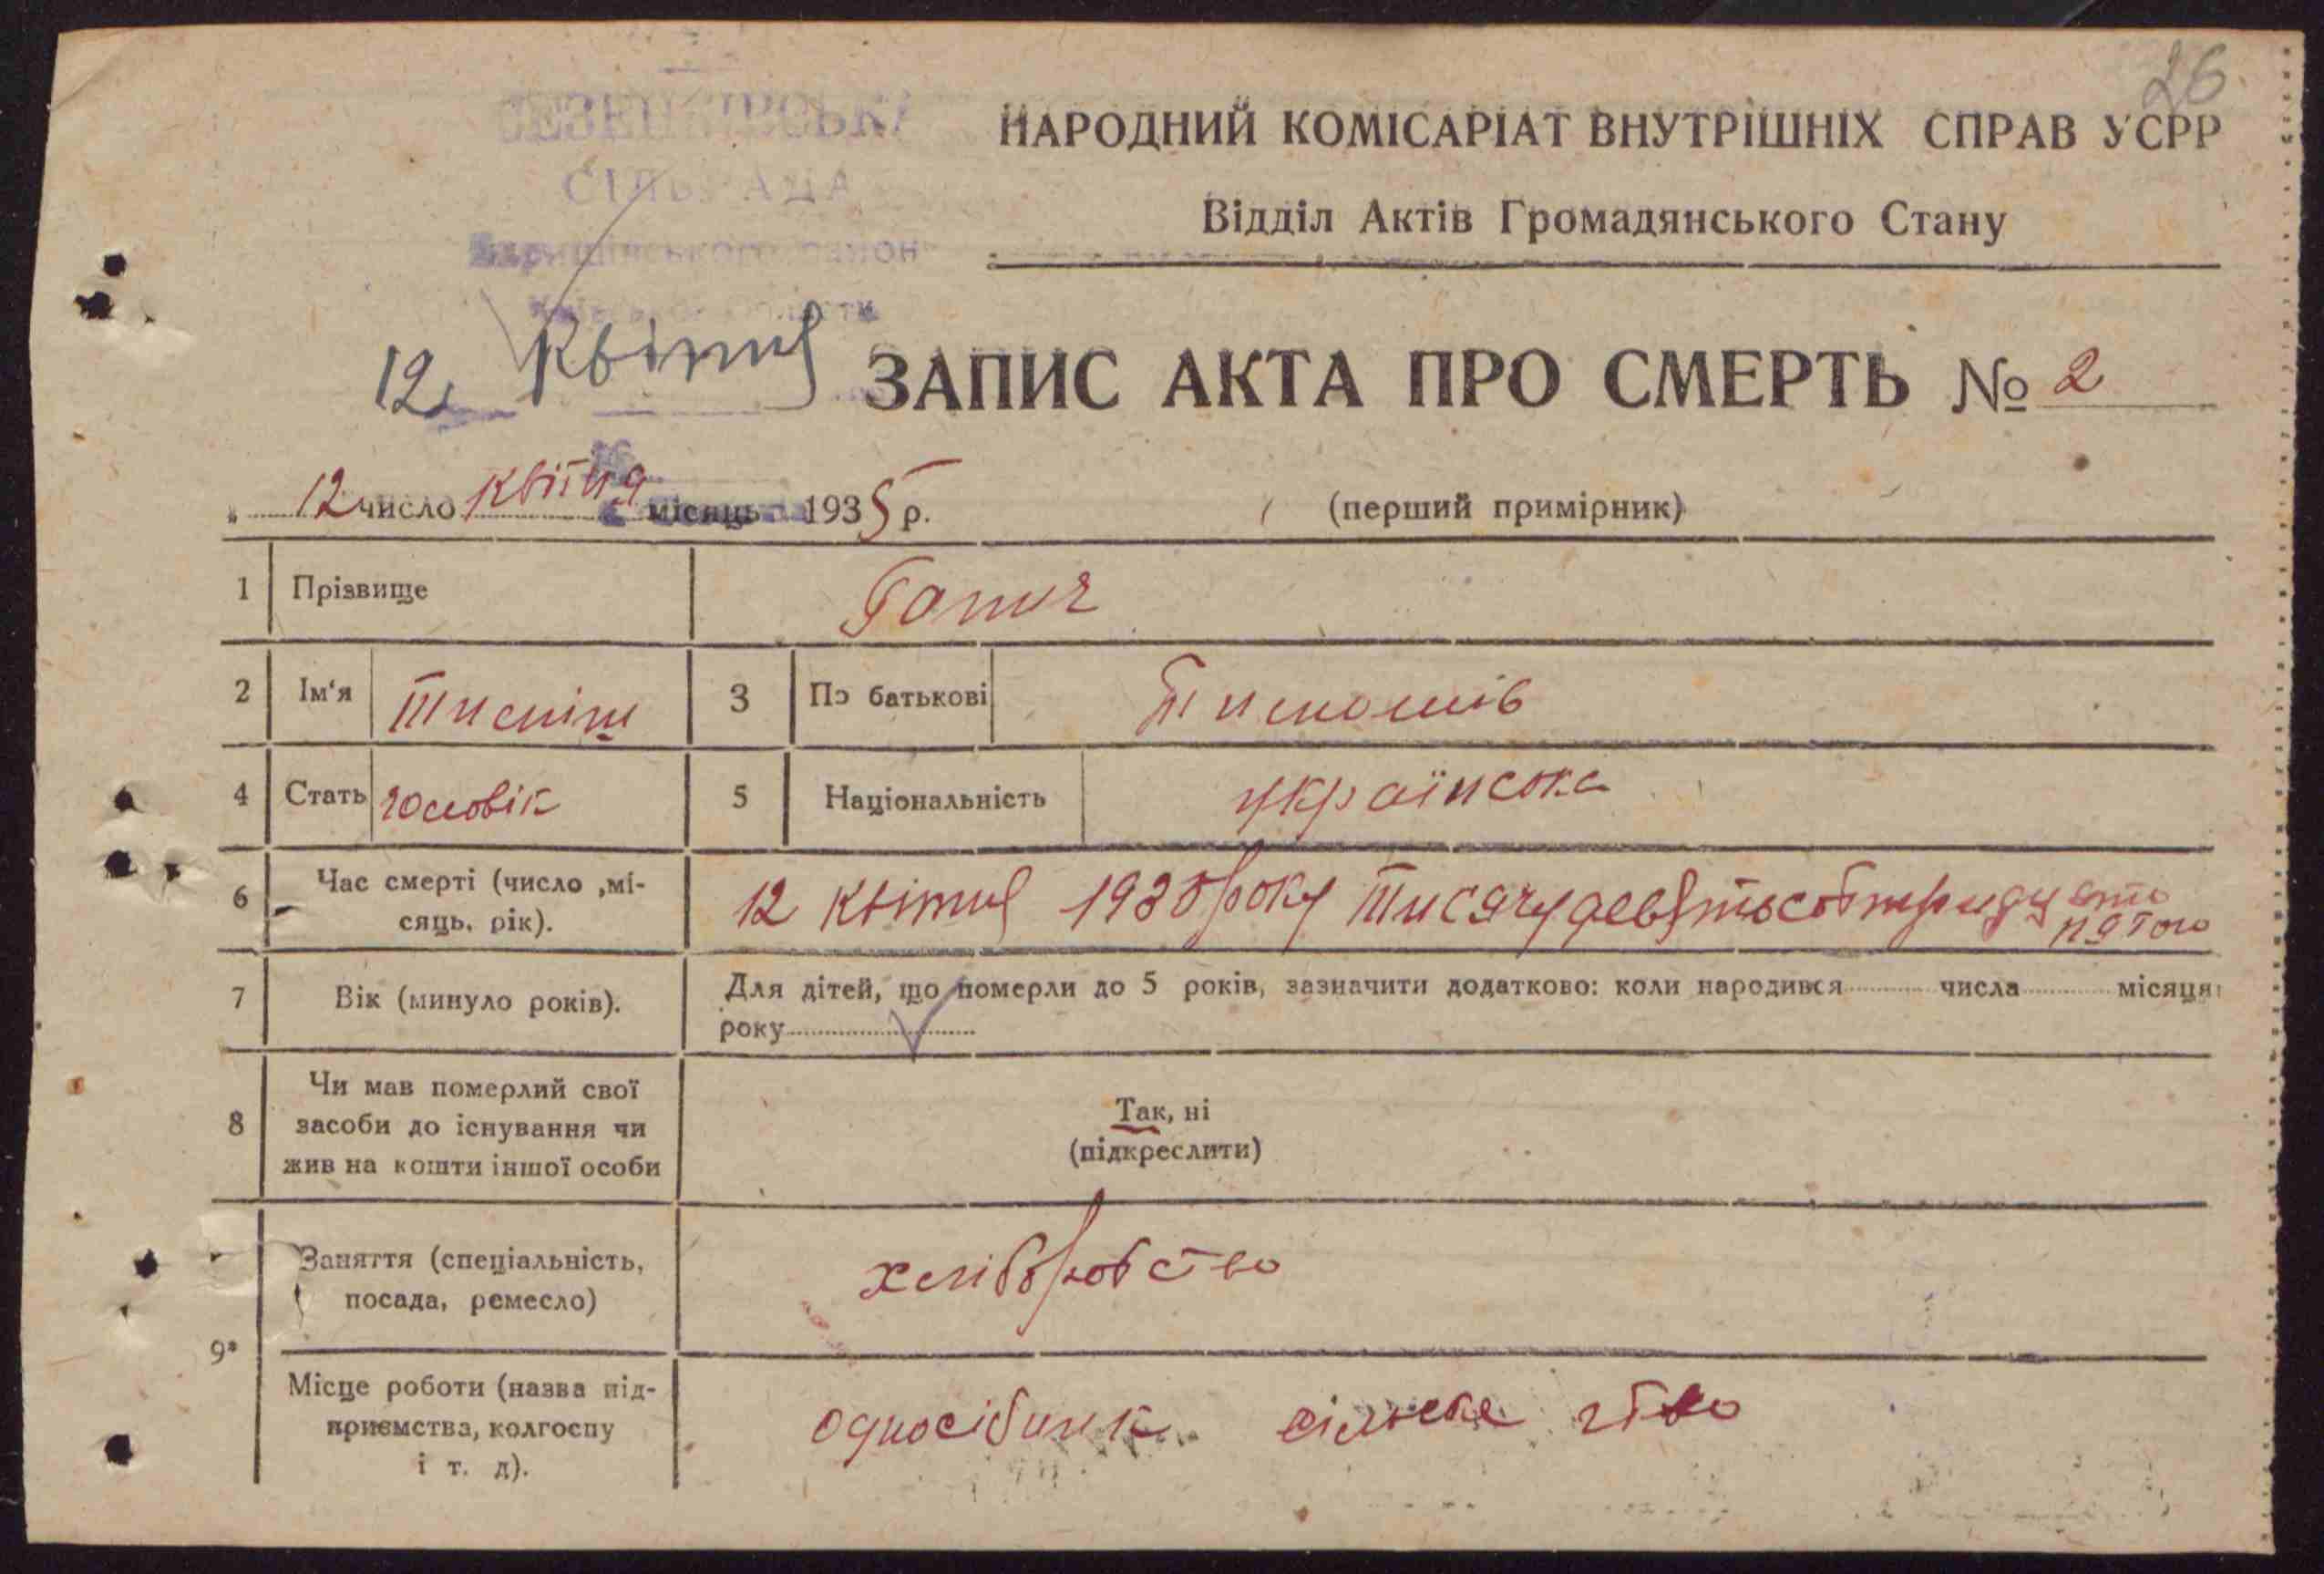 26
НАРОДНИЙ КОМІСАРІАТ ВНУТРІШНІХ СПРАВ УСРР
СІЛЬРАДА
Відділ Актів Громадянського Стану
12 Квітня ЗАПИС АКТА ПРО СМЕРТЬ № 2
12 число Квітня місяць 1935 р. (перший примірник)
1 Прізвище
2 Ім'я 3 По батькові
4 Стать чоловік 5 Національність українська
6 Час смерті (число ,мі-
сяць, рік).
12 Квітня 1935 року Тисячу девятьсот тридцять
пятого
7 Вік (минуло років). Для дітей, що померли до 5 років, зазначити додатково: коли народився числа місяця
року
8 Чи мав померлий свої
засоби до існування чи
жив на кошти іншої особи
Так, ні
(підкреслити)
9*
Заняття (спеціальність,
посада, ремесло)
хліборобство
Місце роботи (назва під-
приємства, колгоспу
і т. д).
односібник сільське